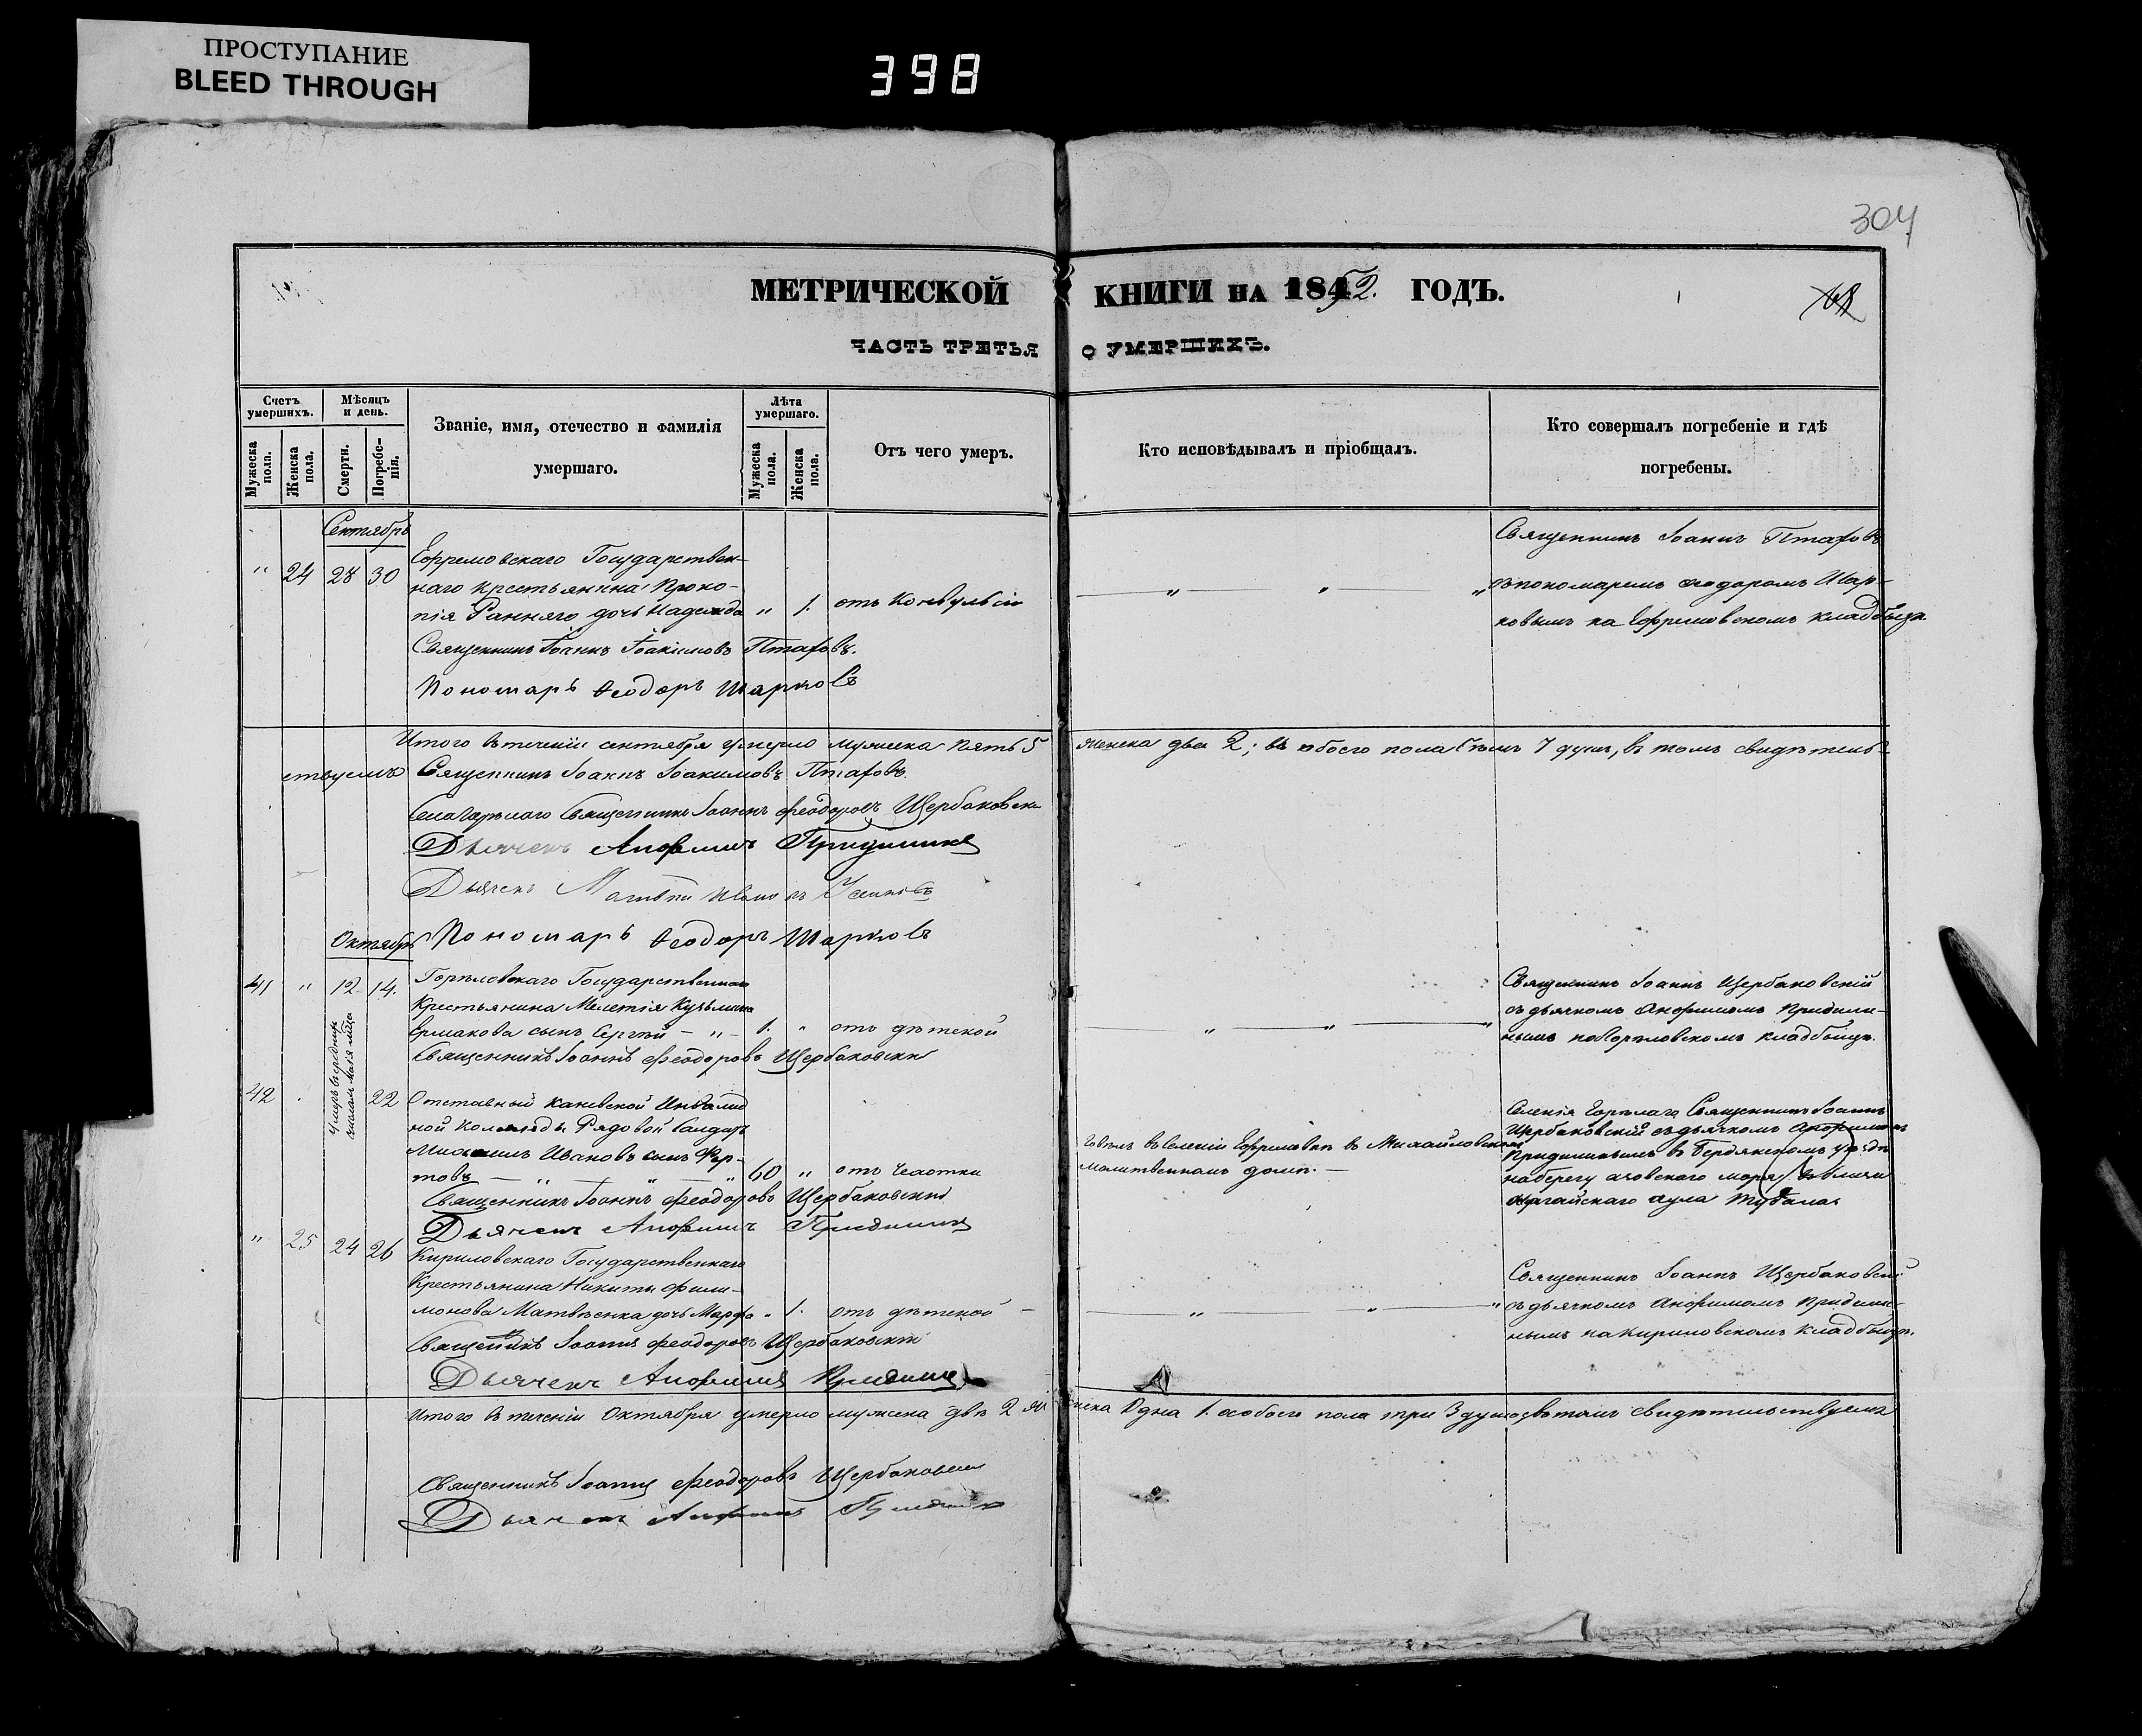 ПРОСТУПАНИЕ
BLEED THROUGH
398
304
МЕТРИЧЕСКОЙ КНИГИ НА 1852. ГОДЪ.
68
ЧАСТЬ ТРЕТЬЯ О УМЕРШИХЪ.
Счетъ умершихъ.
Мужеска пола.
Женска пола.
Мѣсяцъ и день.
Смерти.
Погребенія.
Званіе, имя, отечество и фамилія
умершаго.
Лѣта умершаго.
Мужеска пола.
Женска пола.
Отъ чего умеръ.
Кто исповѣдывалъ и пріобщалъ.
Кто совершалъ погребеніе и гдѣ
погребены.
Сентябрь
" 24 28 30
Ефремовскаго Государствен-
наго крестьянина Проко-
пія Ранняго дочь Надежда " 1. отъ Конвульсіи
Священникъ Іоаннъ Іоакимовъ Птаховъ.
Пономарь Ѳеодоръ Шарковъ
" " "
Священникъ Іоаннъ Птаховъ
съ пономаремъ Ѳеодоромъ Шар-
ковымъ на Ефремовскомъ кладбищѣ.
Итого въ теченіи сентября умерло мужеска пять 5 женска два 2; въ обоего пола семъ 7 душъ, въ томъ свидѣтель-
ствуемъ Священникъ Іоаннъ Іоакимовъ Птаховъ.
Села Горѣлаго Священникъ Іоаннъ Феодоровъ Щербаковскій
Дьячекъ Анфимъ
Дьячекъ
Пономарь Ѳеодоръ Шарковъ
Октябрь
41 " 12 14.
Горѣловскаго Государственнаго
Крестьянина Мелетія Кузьмина
Ермакова сынъ Сергѣй — " — 1. " отъ дѣтской
Священникъ Іоаннъ Феодоровъ Щербаковскій
" " "
Священникъ Іоаннъ Щербаковскій
съ дьячкомъ Анфимомъ Придили-
нымъ на Горѣловскомъ кладбищѣ.
42 . 22
Умеръ въ среднихъ числахъ Маія мѣсяца
Отставный Каневской Инвалид
ной Команды Рядовой Салдатъ
Ивановъ сынъ Фер-
товъ — " — " — " 60 " отъ Чахотки
Священникъ Іоаннъ Феодоровъ Щербаковскій
Дьячекъ Анфимъ
Говѣлъ въ селеніи Ефремовки въ Михайловскомъ
молитвенномъ домѣ. —
Селенія Горѣлаго Священникъ Іоаннъ
Щербаковскій съ дьячкомъ Анфимомъ
Придилинымъ въ Бердянскомъ уѣздѣ
на берегу азовскаго моря въ близи
Ногайскаго аула
" 25 24 26
Кириловскаго Государственнаго
Крестьянина Никиты Фили-
монова Матвѣенка дочь Марфа " 1. отъ дѣтской —
Священникъ Іоаннъ Феодоровъ Щербаковскій
Дьячекъ Анфимъ
" "
Священникъ Іоаннъ Щербаковскій
съ дьячкомъ Анфимомъ Придили-
нымъ на Кириловскомъ кладбищѣ.
Итого въ теченіи Октября умерло мужеска два 2 женска Одна 1. а обоего пола три 3 души въ томъ свидѣтельствуемъ
Священникъ Іоаннъ Феодоровъ Щербаковскій
Дьячекъ Анфимъ